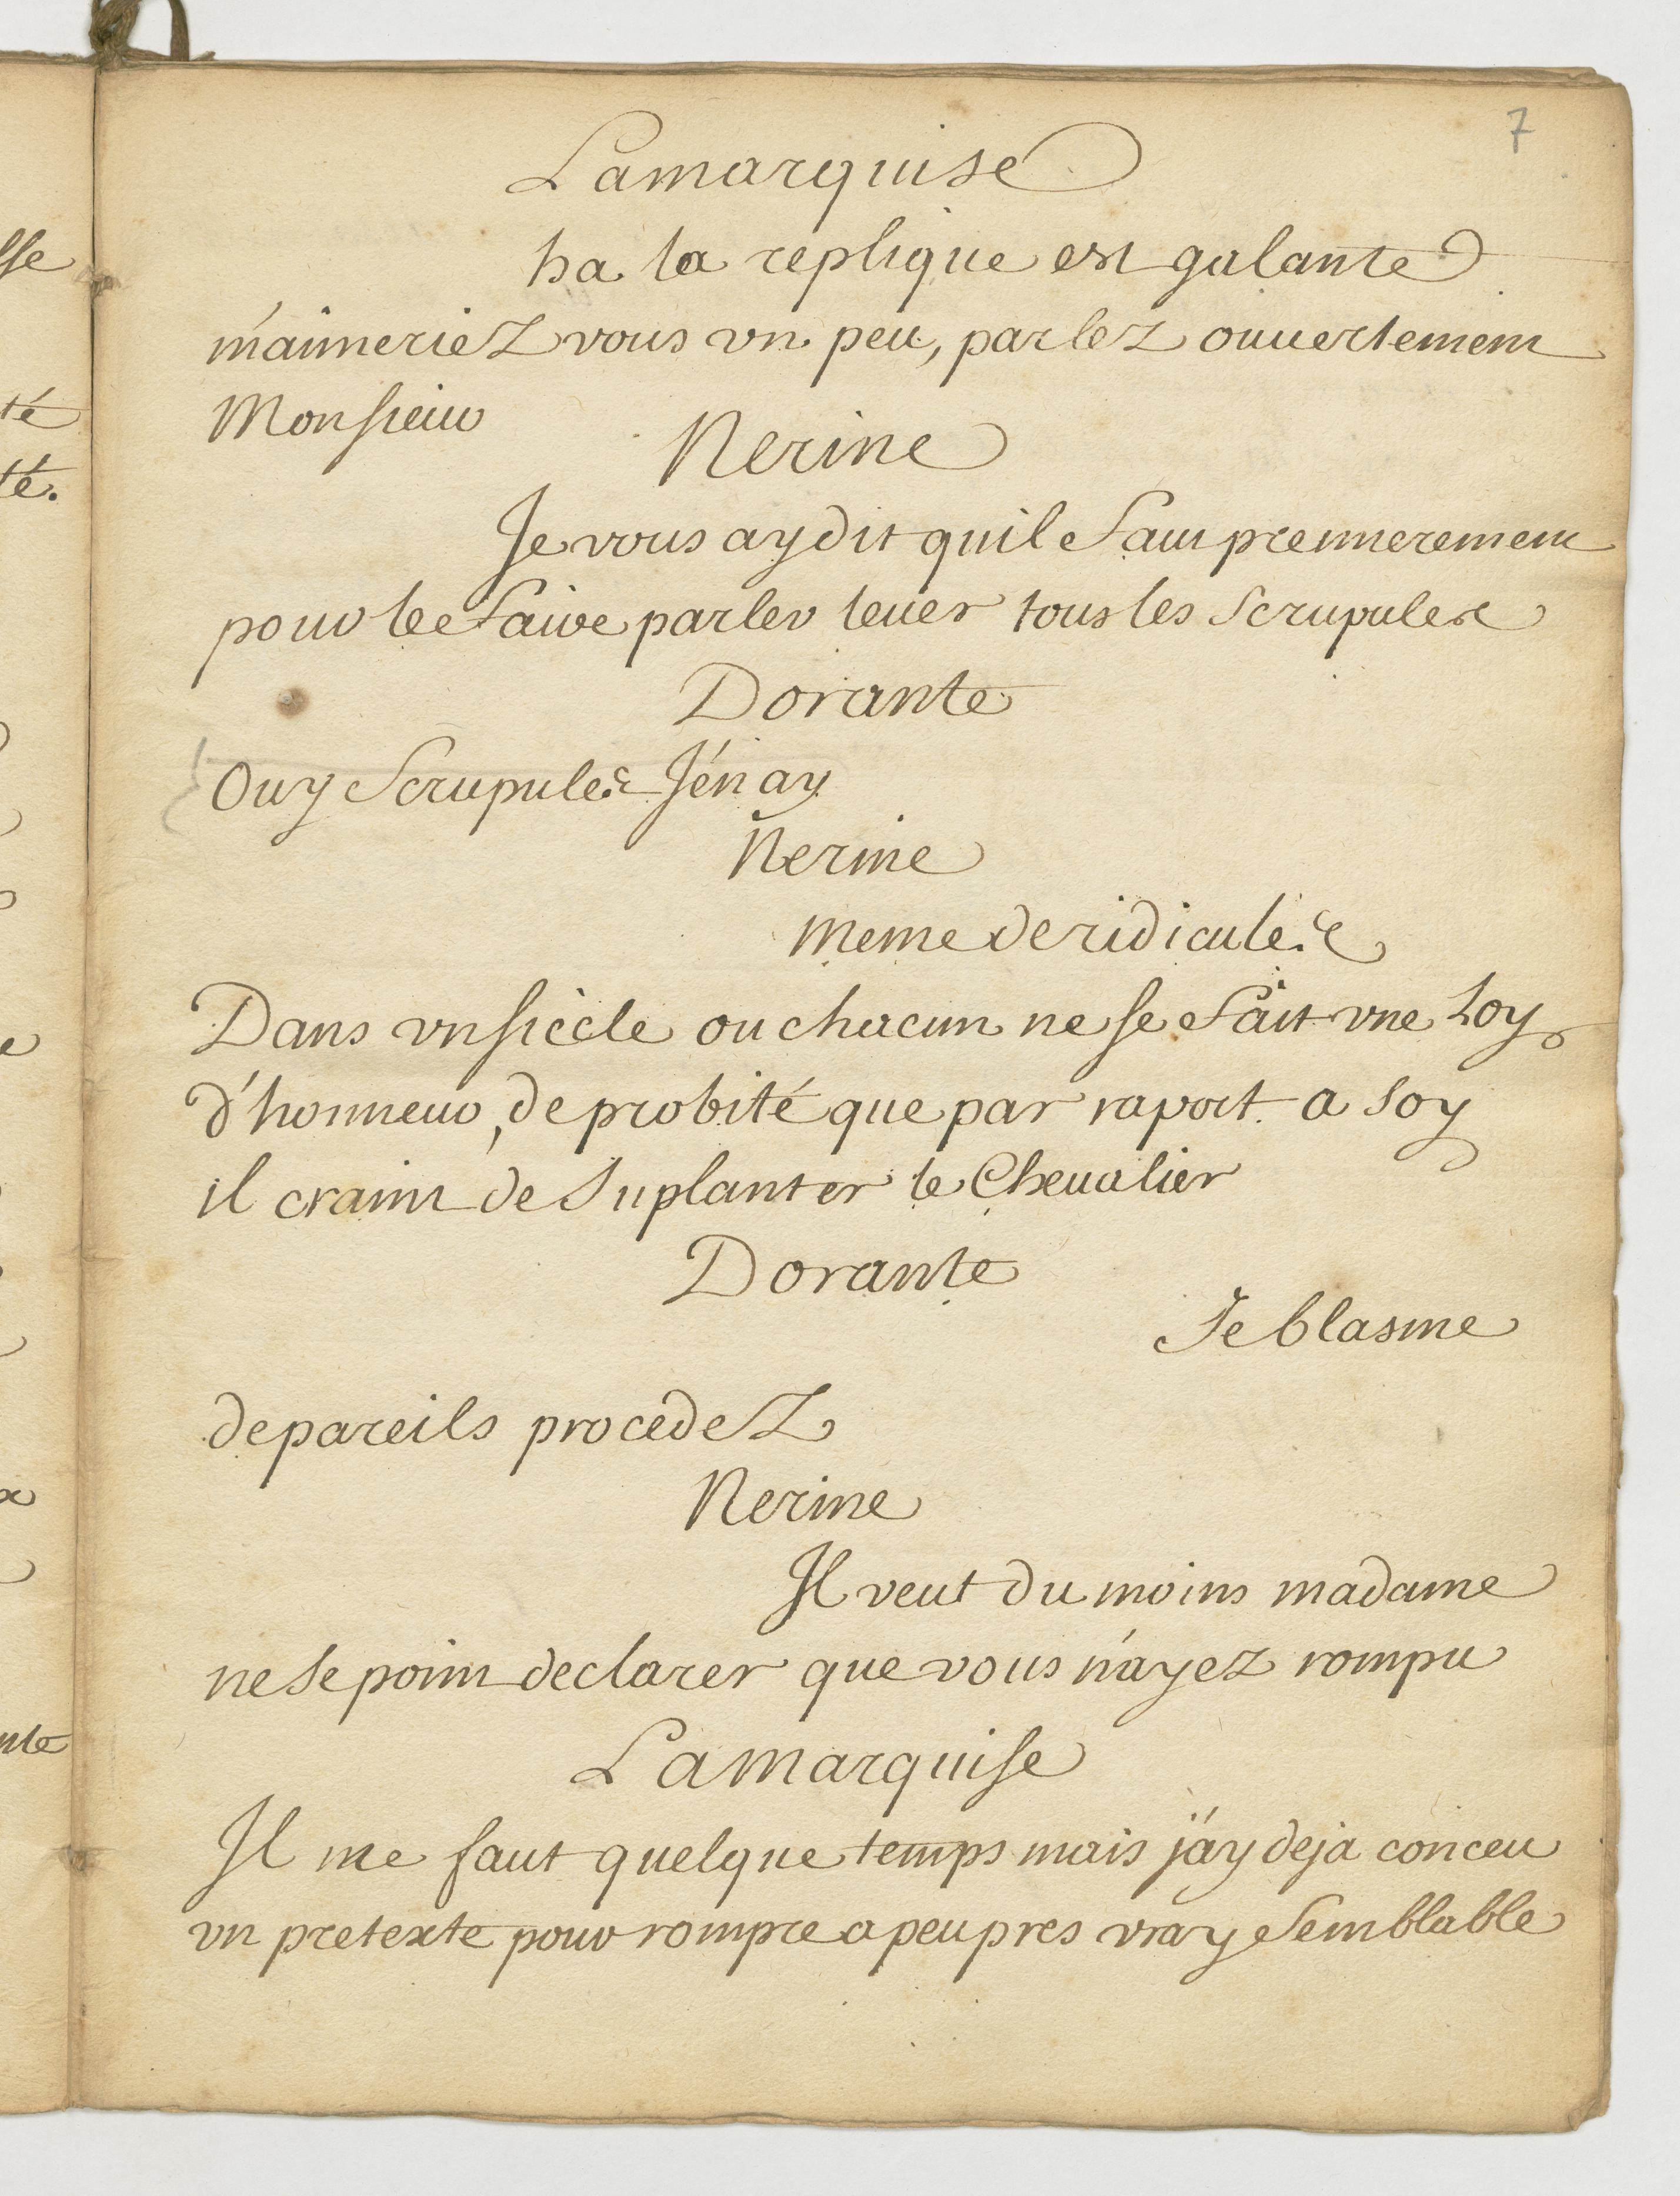 7
Lamarquise
ha la replique est galante
m'aimeriez vous vn peu, parlez ouuertement
Monsieur
Nerine
Je vous ay dit quil faut premierement
pour le faire parler leuer tous les scrupules
Dorante
Ouy scrupules J'en ay
Nerine
meme de ridicules
Dans vn siécle ou chacun ne se fait vne Loy
d'honneur, de probité que par raport a soy
il craint de suplanter le Cheualier
Dorante
Je blasme
de pareils procedez
Nerine
Il veut du moins madame
ne se point declarer que vous n'ayez rompu
Lamarquise
Il me faut quelque temps mais j'ay deja conceu
vn pretexte pour rompre a peu pres vray semblable